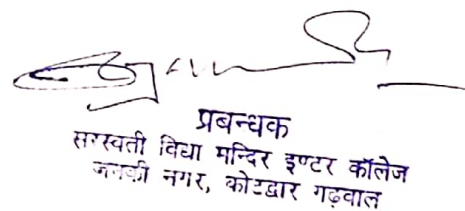 प्रबन्धक
सरस्वती विद्या मन्दिर इण्टर कॉलेज
जानकी नगर, कोटद्वार गढ़वाल